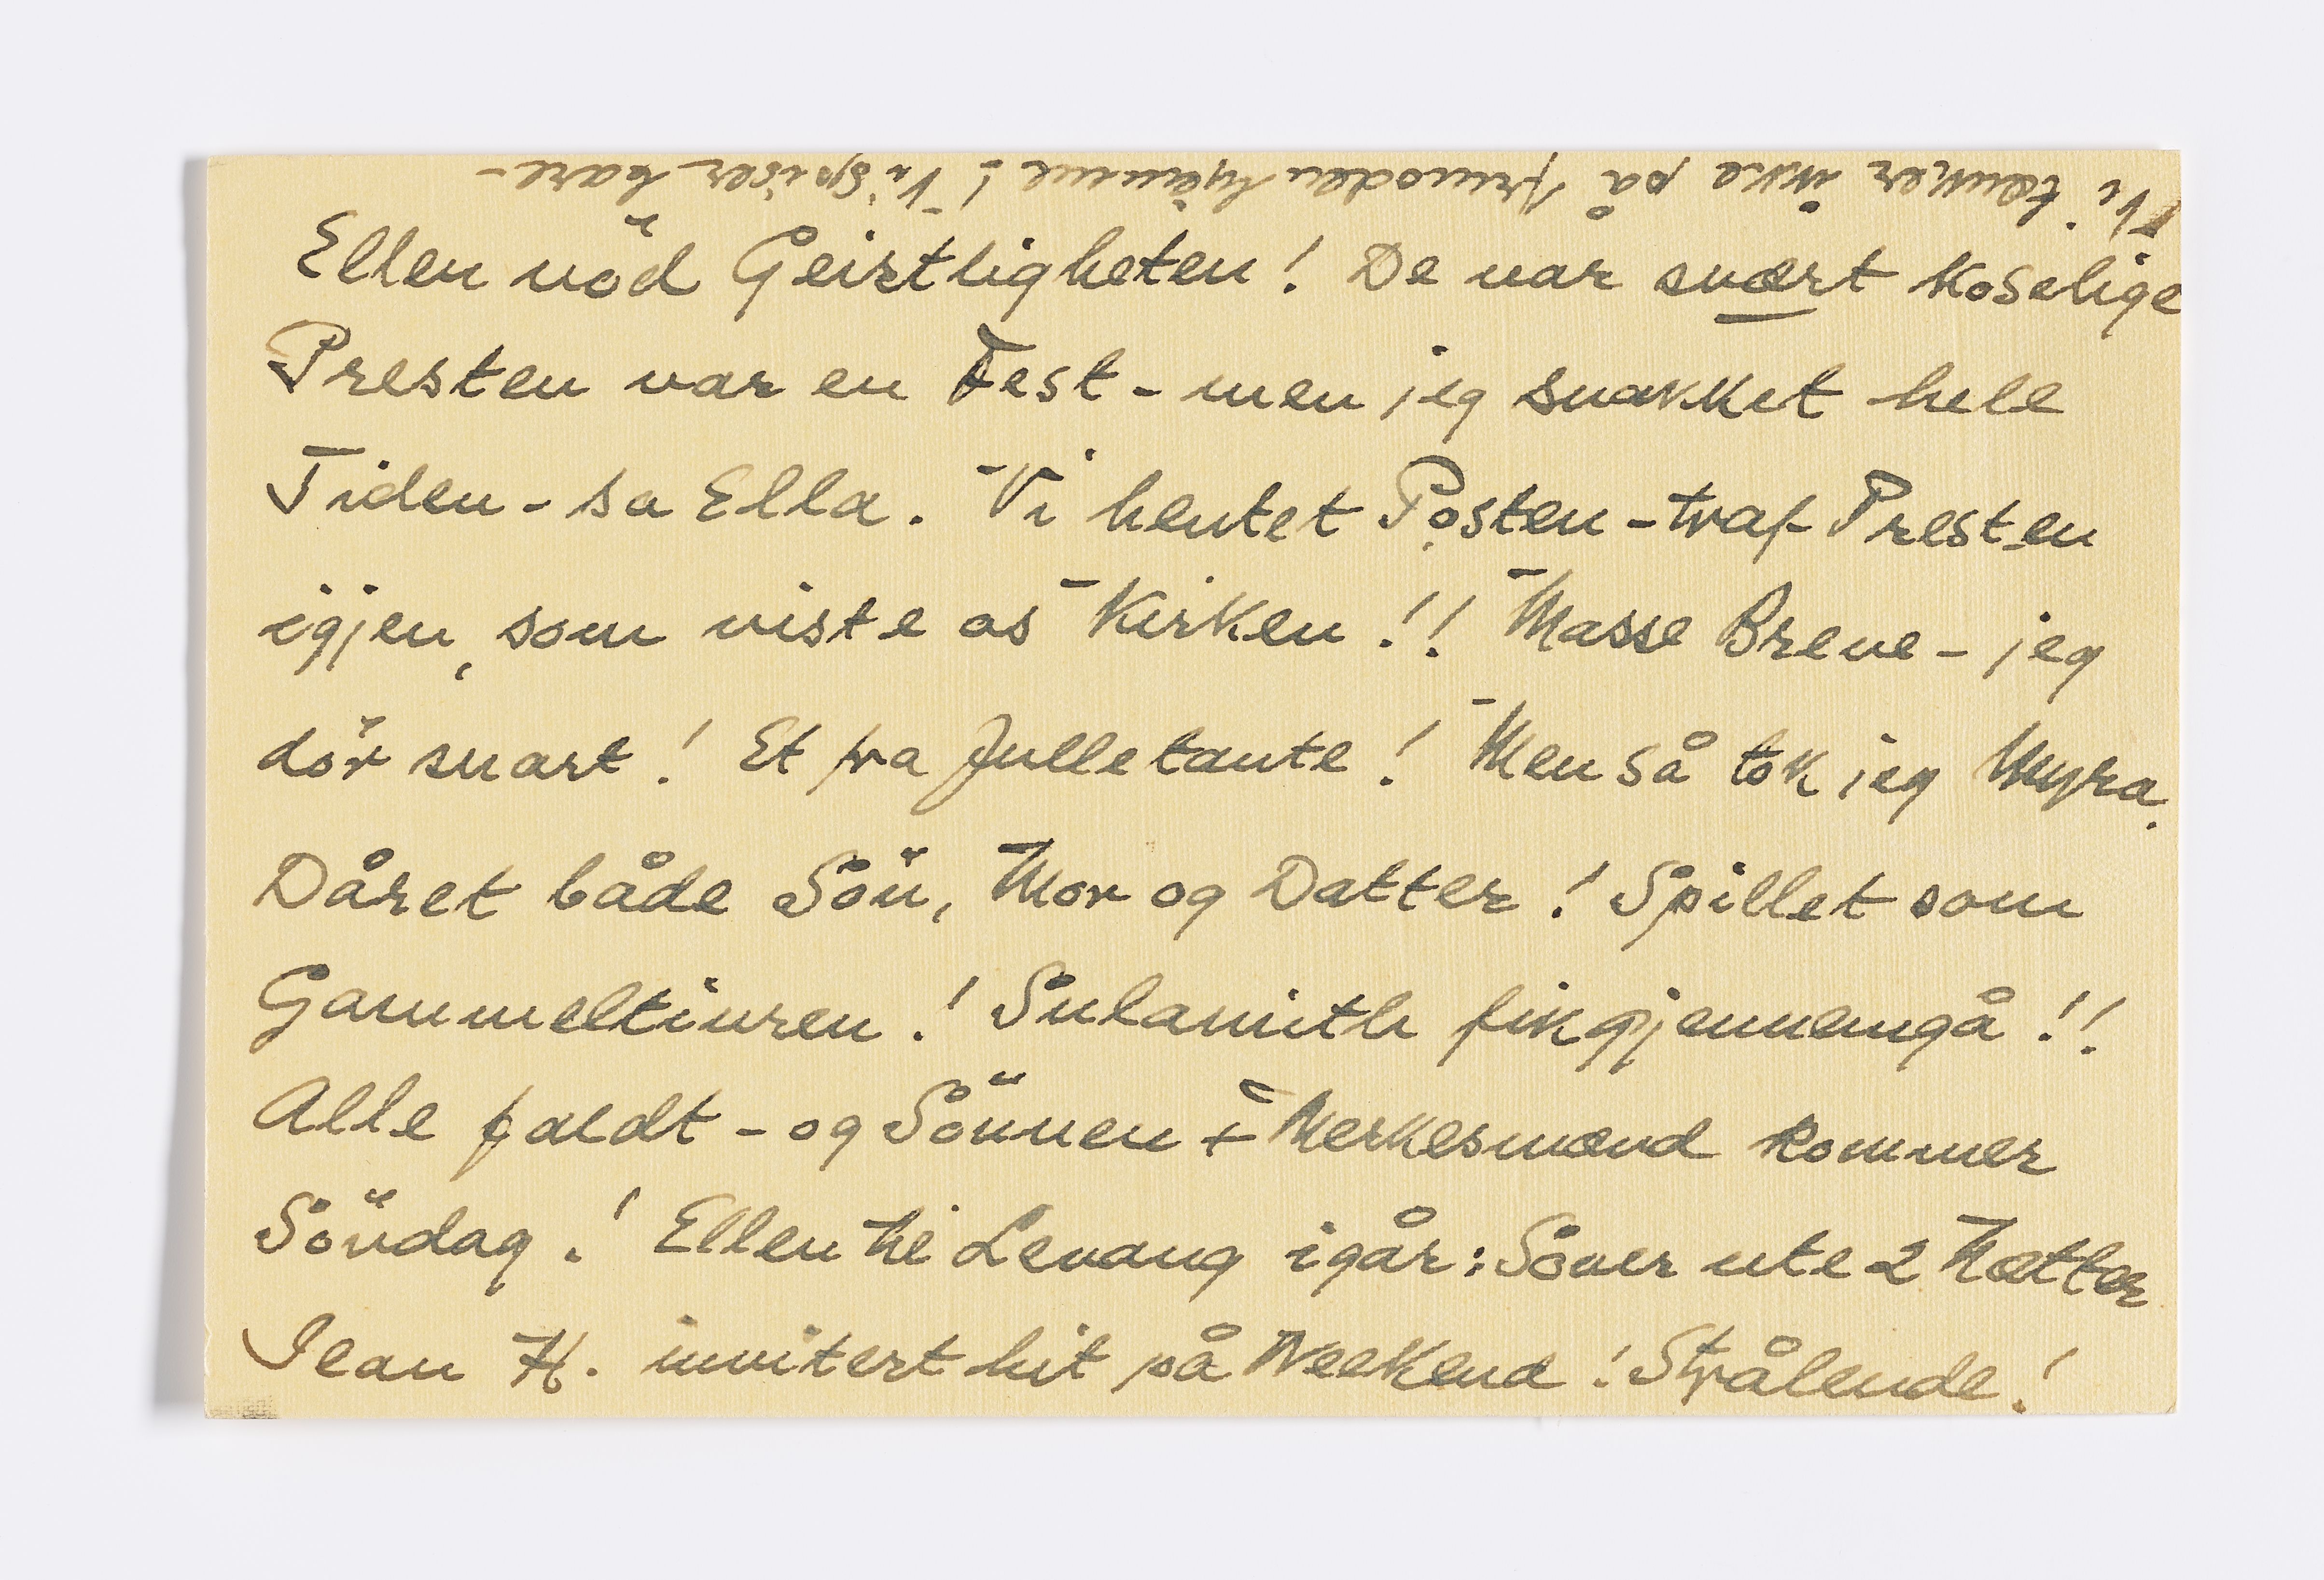 Vi tænker ikke på knuoden hjemme! Vi spiser bare –
Ellen nöd Geistligheten! De var svært koselige
Presten var en Fest – men jeg snakket hele
Tiden – sa Ella. Vi hentet Posten – traf Presten
igjen, som viste os Kirken!! Masse Breve – jeg
dör snart! Et fra Julletante! Men så tok jeg Myra.
Dåret både Sön, Mor og Datter! Spillet som
Gammeltiuren! Sulamith fik gjennemgå!!
Alle faldt – og Sönnen + Merkesmænd kommer
Söndag! Ellen til Levang igår: Sover ute 2 Nætter
Jean H. invitert hit på Weekend! Strålende!